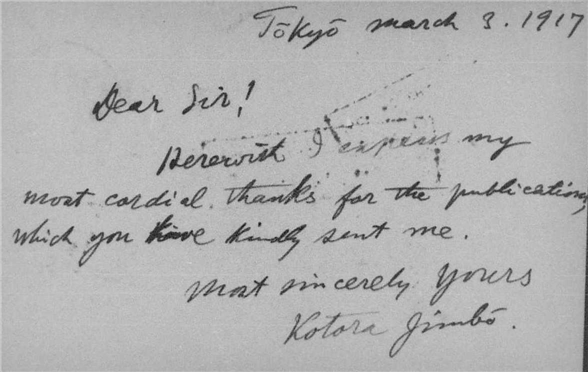 Tōkyō march 3. 1917
Dear Sir!
Herewith I express my
most cordial thanks for the publications,
which you have kindly sent me.
Most sincerely yours
Kotora Jimbō.